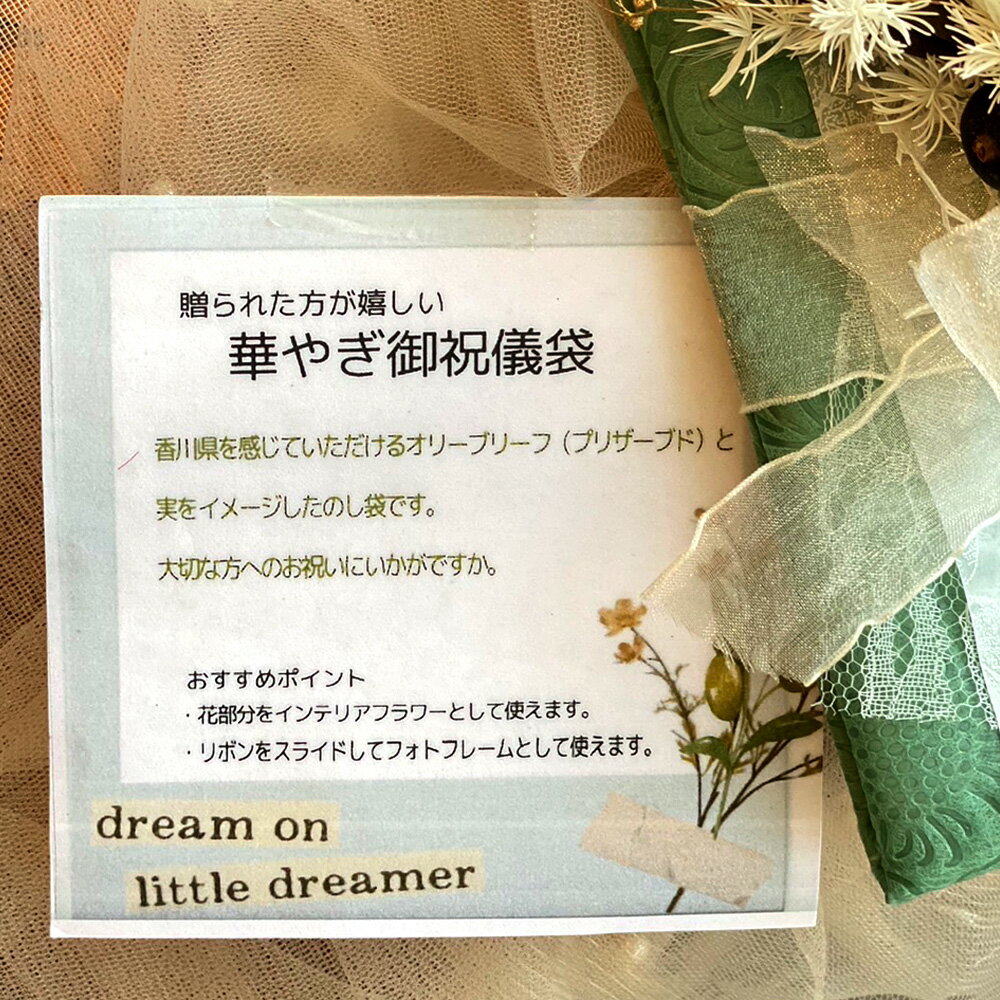 贈られた方が嬉しい
華やぎ御祝儀袋
香川県を感じていただけるオリーブリーフ（プリザーブド）と
実をイメージしたのし袋です。
大切な方へのお祝いにいかがですか。
おすすめポイント
・花部分をインテリアフラワーとして使えます。
・リボンをスライドしてフォトフレームとして使えます。
dream on
little dreamer